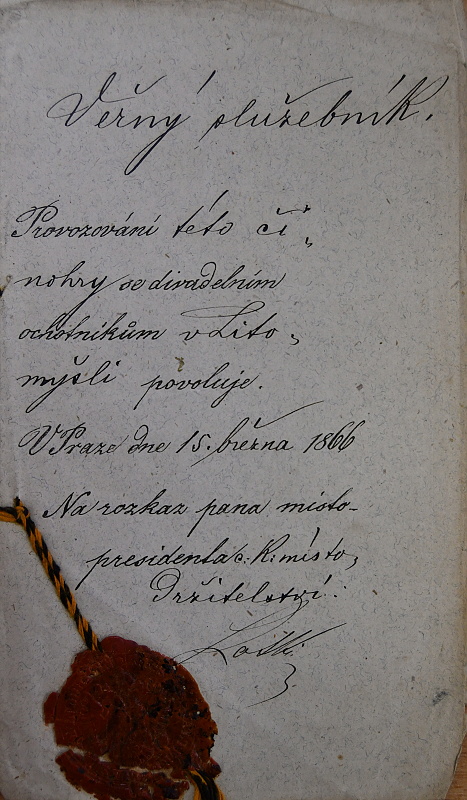 Věrný služebník.
Provozování této či„
nohry se divadelním
ochotníkům v Lito„
myšli povoluje.
V Praze dne 15. března 1866
Na rozkaz pana místo-
presidenta c: k: místo„
držitelství: